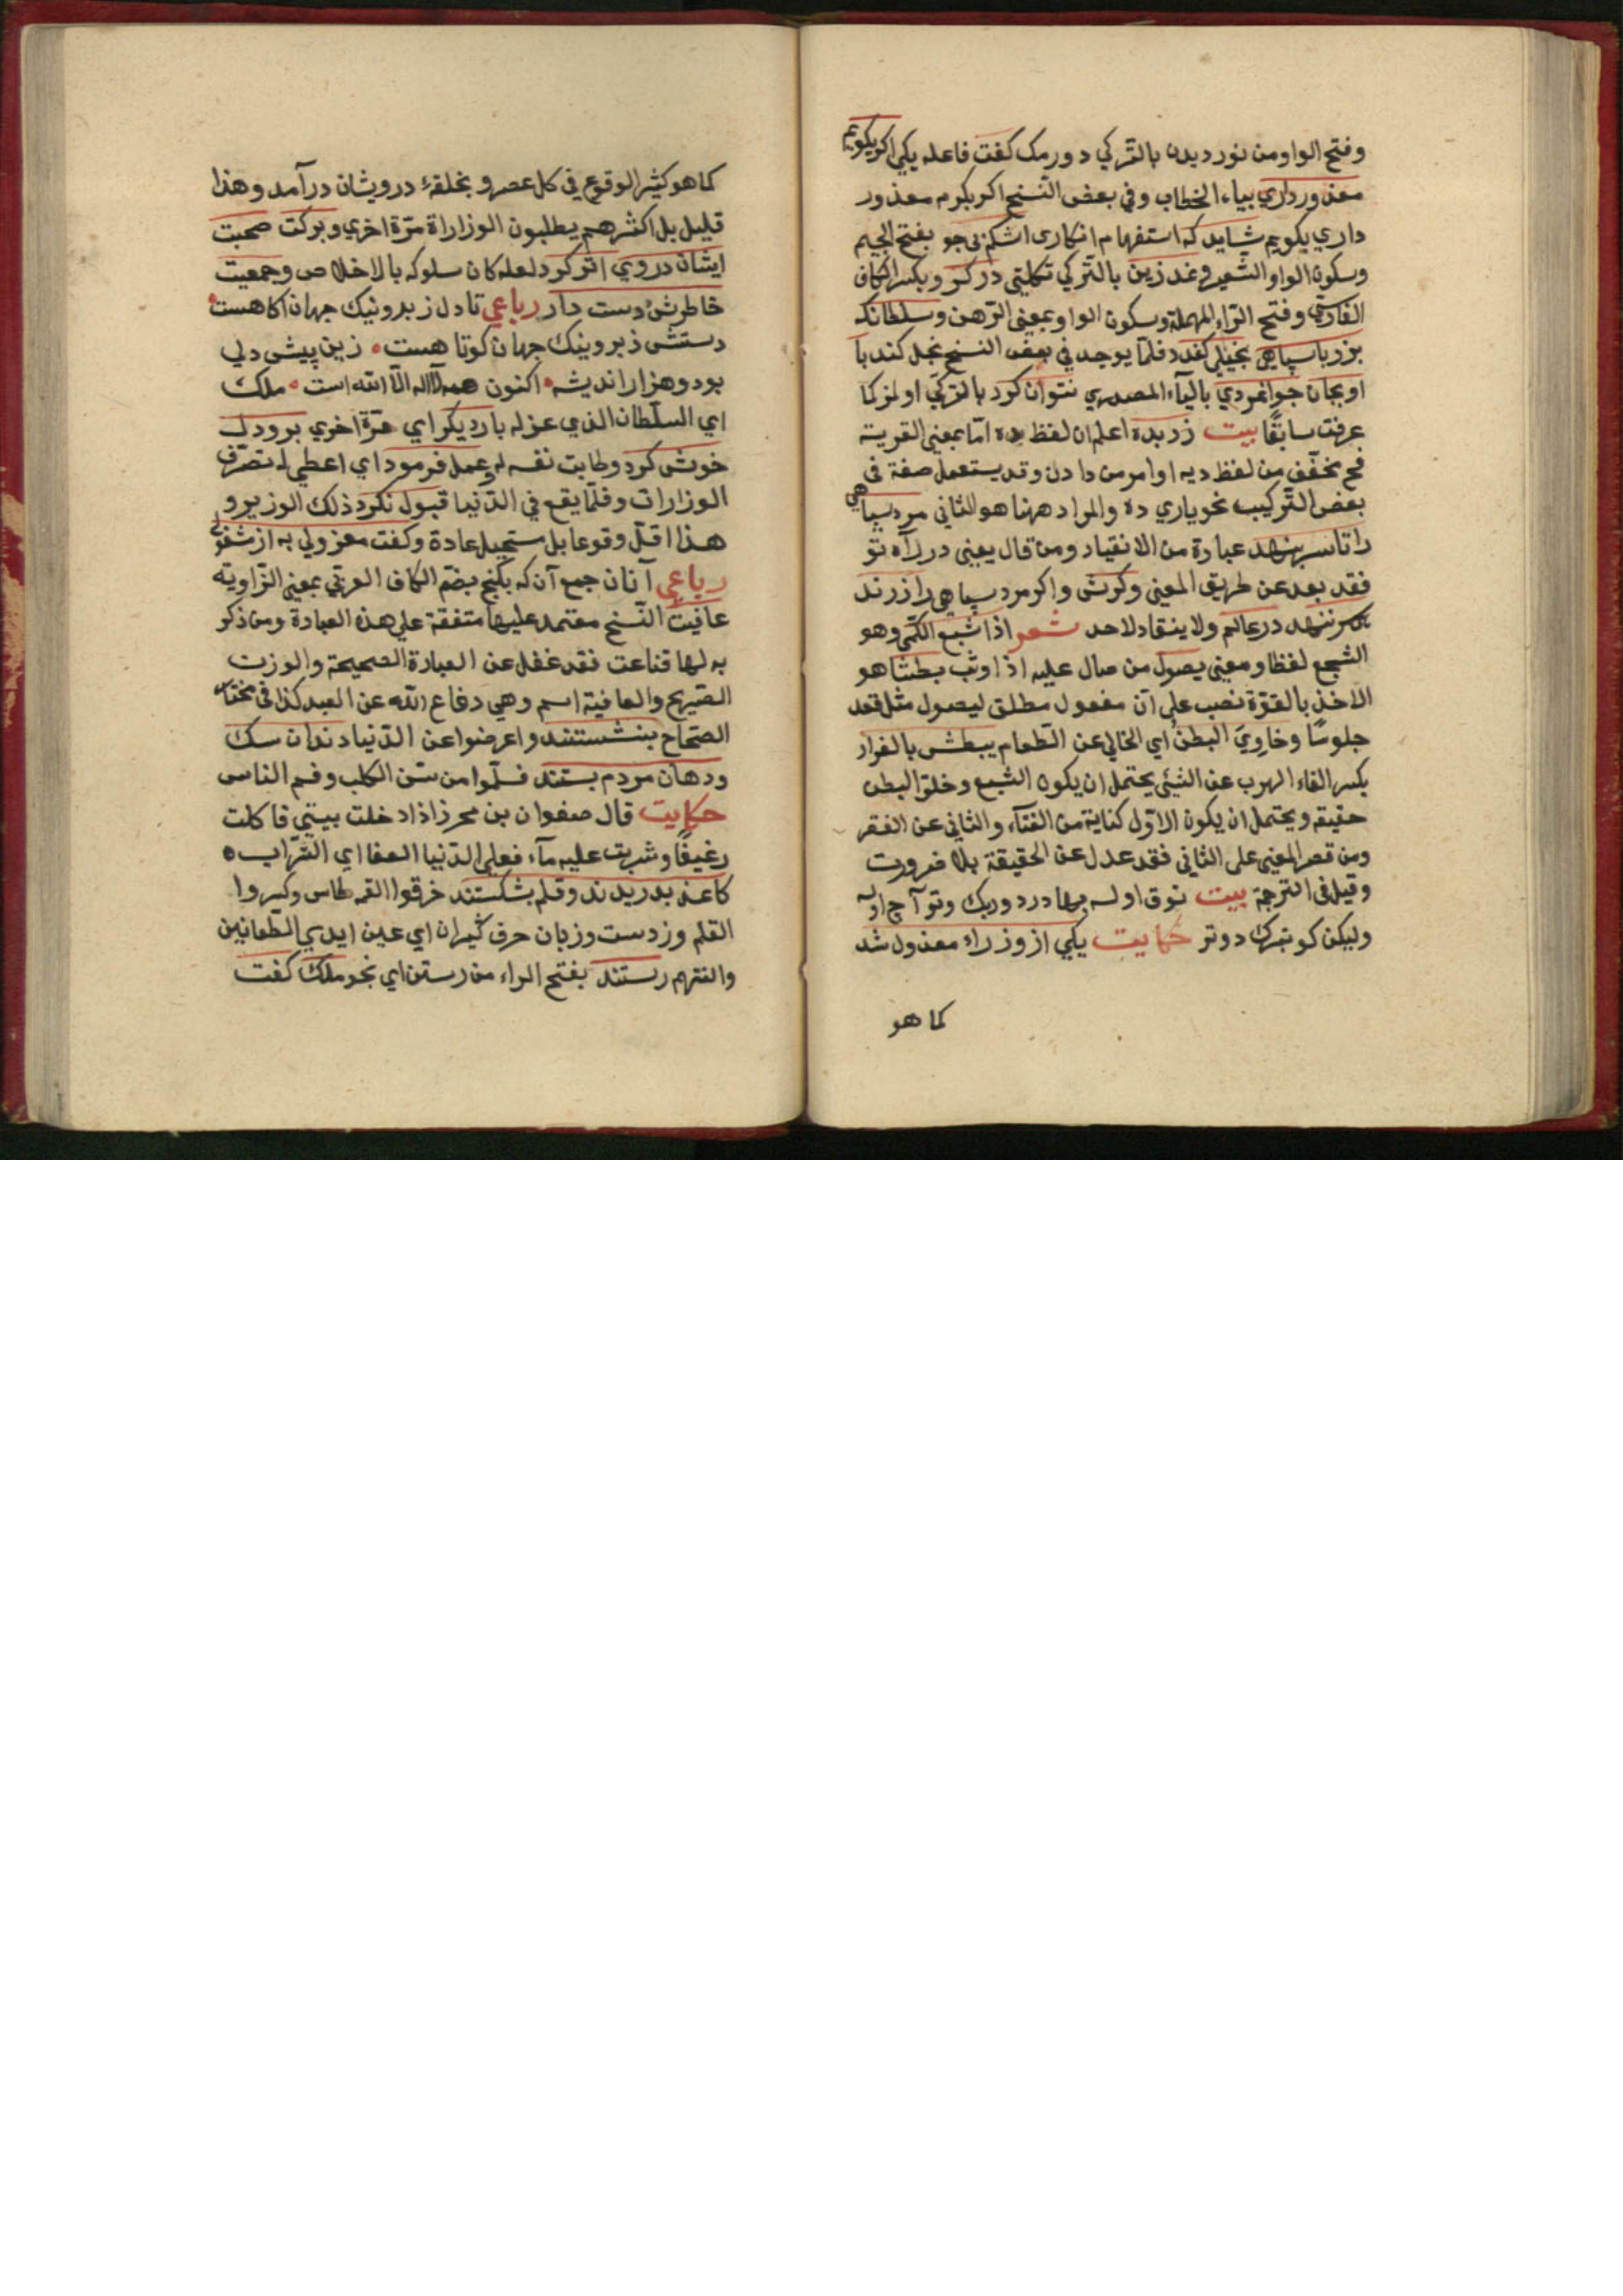 وفتح الواو من نورديدن بالتركي دورمك كفت فاعله يكي اكر بكويم
معذور داري بياء الخطاب وفي بعض النسخ اكر بكرم معذور
داري بكويم شايد كه استفهام انكارى اشكم بى جو بفتح الجيم
وسكون الواو الشعير وغد زين بالتركي تكلتى در كرو بكسر الكاف
الفارسي وفتح الراء المهملة وسكون الواو بمعنى الرهن وسلطانكه
بزر با سپاهي بخيلي كند فلما يوجد في بعض النسخ بخل كند با
او بجان جوانمردي بالياء المصدري نتوان كرد بالتركي اولمز كما
عرفت سابقا بيت زر بده اعلم ان لفظ ده اما بمعنى القرية
فح مخفف من لفظ ديه او امر من دادن وقد يستعمل صفة فى
بعض التركيب نحو ياري ده والمراد ههنا هو الثاني مرد سپاهي
را تا سر بنهد عبارة من الانقياد ومن قال يعني در راه تو
فقد بعد عن طريق المعني وكرش واكر مرد سپاهي را زر ندهد
سر ننهد در عالم ولا ينقاد لاحد شعر اذا شبع الكمى وهو
الشجع لفظا ومعني يصول من صال عليه اذا وثب بطشا هو
الاخذ بالقوة نصب على ان مفعول مطلق ليصول مثل قعد
جلوسًا وخاوي البطن اي الخالي عن الطعام يبطش بالفرار
بكسر الفاء الهرب عن الشئ يحتمل ان يكون الشبع وخلو البطن
حقيقة ويحتمل ان يكون الاول كناية من الغناء والثاني عن الفقر
ومن قصر المعنى على الثاني فقد عدل عن الحقيقة بلا ضرورت
وقيل فى الترجمة بيت توق اولسه در دوريك وتو آج اوله
وليكن كوتبرك دوتر حكايت يكي از وزراء معذول شد
كما هو
كما هو كثير الوقوع في كل عصر و بحلقهٔ درويشان درآمد وهذا
قليل بل اكثرهم يطلبون الوزاراة مرة اخري وبركت صحبت
ايشان در وي اثر كرد لعله كان سلوكه بالاخلاص وجمعيت
خاطرش دست داد رباعي تا دل ز بد ونيك جهان اكاهست
دستش ز بد ونيك جهان كوتا هست زين پيش دلي
بود وهزار انديشه اكنون همه لا اله الا الله است ملك
اي السلطان الذي عزله بار ديكر اي مرة اخري برو دل
خوش كرد وطابت نفسه له وعمل فرمود اي اعطي له تصرف
الوزارات وقلما يقع في الدنيا قبول نكرد ذلك الوزير و
هذا اقل وقوعا بل مستحيل عادة وكفت معزولي به از مشغولي
رباعى آنان جمع آن كه بكنج بضم الكاف العربي بمعنى الزاوية
عافيت النسخ معتمد عليها متفقة علي هذه العبارة ومن ذكر
به لها قناعت فقد غفل عن العبارة الصحيحة والوزن
الصريح والعافية اسم وهي دفاع الله عن العبد كذا فى مختار
الصحاح بنشستند واعرضوا عن الدنيا دندان سك
ودهان مردم بستند فسلموا من سن الكلب وفم الناس
حكايت قال صفوان بن محرز اذا دخلت بيتي فاكلت
رغيفًا وشربت عليه مآء فعلي الدنيا العفا اي التراب
كاغذ بدريدند وقلم بشكستند خرقوا القرطاس وكسروا
القلم وز دست وزبان حرف كيران اي عين ايدي الطعانين
والسنتهم رستند بفتح الراء من رستن اي نجو ملك كفت